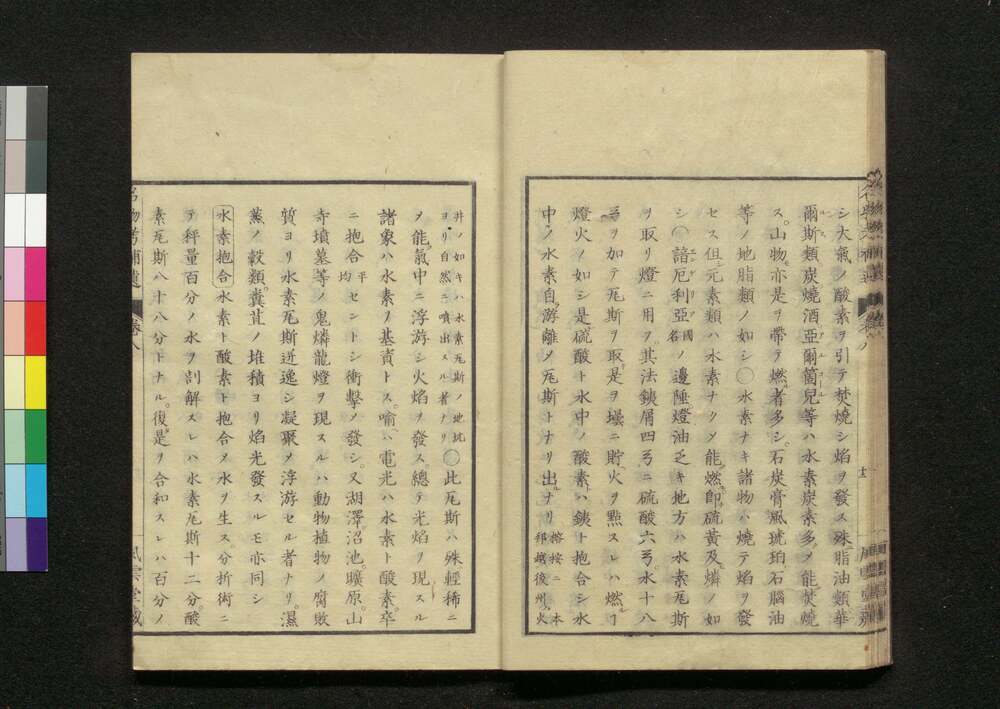 シ大氣ノ酸素ヲ引テ焚燒シ焰ヲ發ス殊脂油類華
爾斯類炭燒酒亞爾箇兒等ハ水素炭素多メ能焚燒
ス山物亦是ヲ帶テ燃者多シ石炭膏瓱琥珀石腦油
等ノ地脂類ノ如シ〇水素ナキ諸物ハ燒テ焰ヲ發
セス但元素類ハ水素ナクメ能燃卽硫黄及燐ノ如
シ〇諳厄利亞國名ノ邊陲燈油乏キ地方ハ水素瓦斯
ヲ取リ燈ニ用フ其法銕屑四弖ニ硫酸六弖水十八
弖ヲ加テ瓦斯ヲ取是ヲ壜ニ貯火ヲ點スレハ燃ヿ
燈火ノ如シ是硫酸ト水中ノ酸素ハ銕ト抱合シ水
中ノ水素自游離メ瓦斯トナリ出ナリ榕按ニ本邦越後州火
井ノ如キハ水素瓦斯ノ地坑ヨリ自然ニ噴出スル者ナリ〇此瓦斯ハ殊輕稀ニ
メ能氣中ニ浮游シ火焰ヲ發ス總テ光焰ヲ現スル
諸象ハ水素ノ基資トス喻ハ電光ハ水素ト酸素卒
ニ抱合平均セントシ衝擊メ發シ又湖澤沼池曠原山
寺墳墓等ノ鬼燐龍燈ヲ現スルハ動物植物ノ腐敗
質ヨリ水素瓦斯迸逸シ凝聚メ浮游セル者ナリ濕
蒸ノ穀類糞苴ノ堆積ヨリ焰光發スルモ亦同シ
水素抱合 水素ト酸素ト抱合メ水ヲ生ス分析術ニ
テ秤量百分ノ水ヲ剖解スレハ水素瓦斯十二分酸
素瓦斯八十八分トナル復是ヲ合和スレハ百分ノ
名物考補遺 卷八